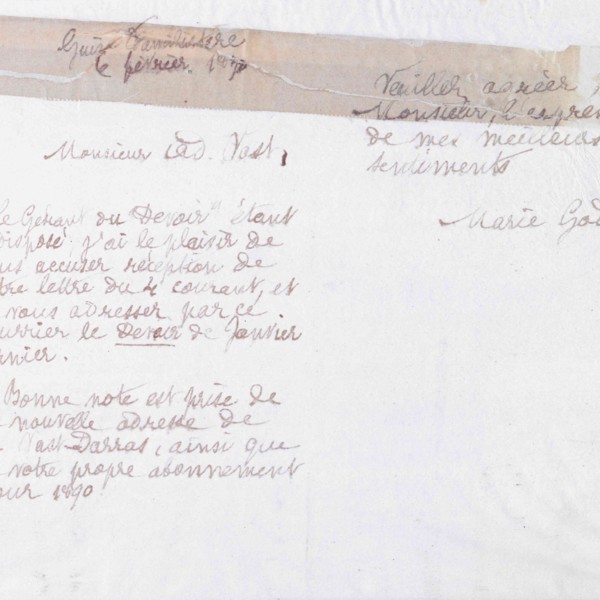 Guise Familistère
6 février 1890
Monsieur Ad. Vast,
le Gérant du "Devoir" étant
disposé j'ai le plaisir de
us accuser réception de
tre lettre du 4 courant, et
vous adresser par ce
urrier le Devoir de Janvier
rnier.
Bonne note est prise de
nouvelle adresse de
Vast-Darras, ainsi que
votre propre abonnement
our 1890
Veuillez agréer
Monsieur, l'expres
de mes meilleurs
sentiments
Marie God